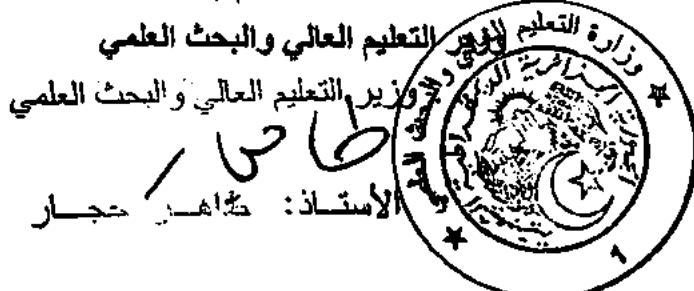 وزير التعليم العالي والبحث العلمي
وزير التعليم العالي والبحث العلمي
الأستاذ: طاهر حجار
وزارة التعليم العالي والبحث العلمي
الجمهورية الجزائرية الديمقراطية الشعبية
1